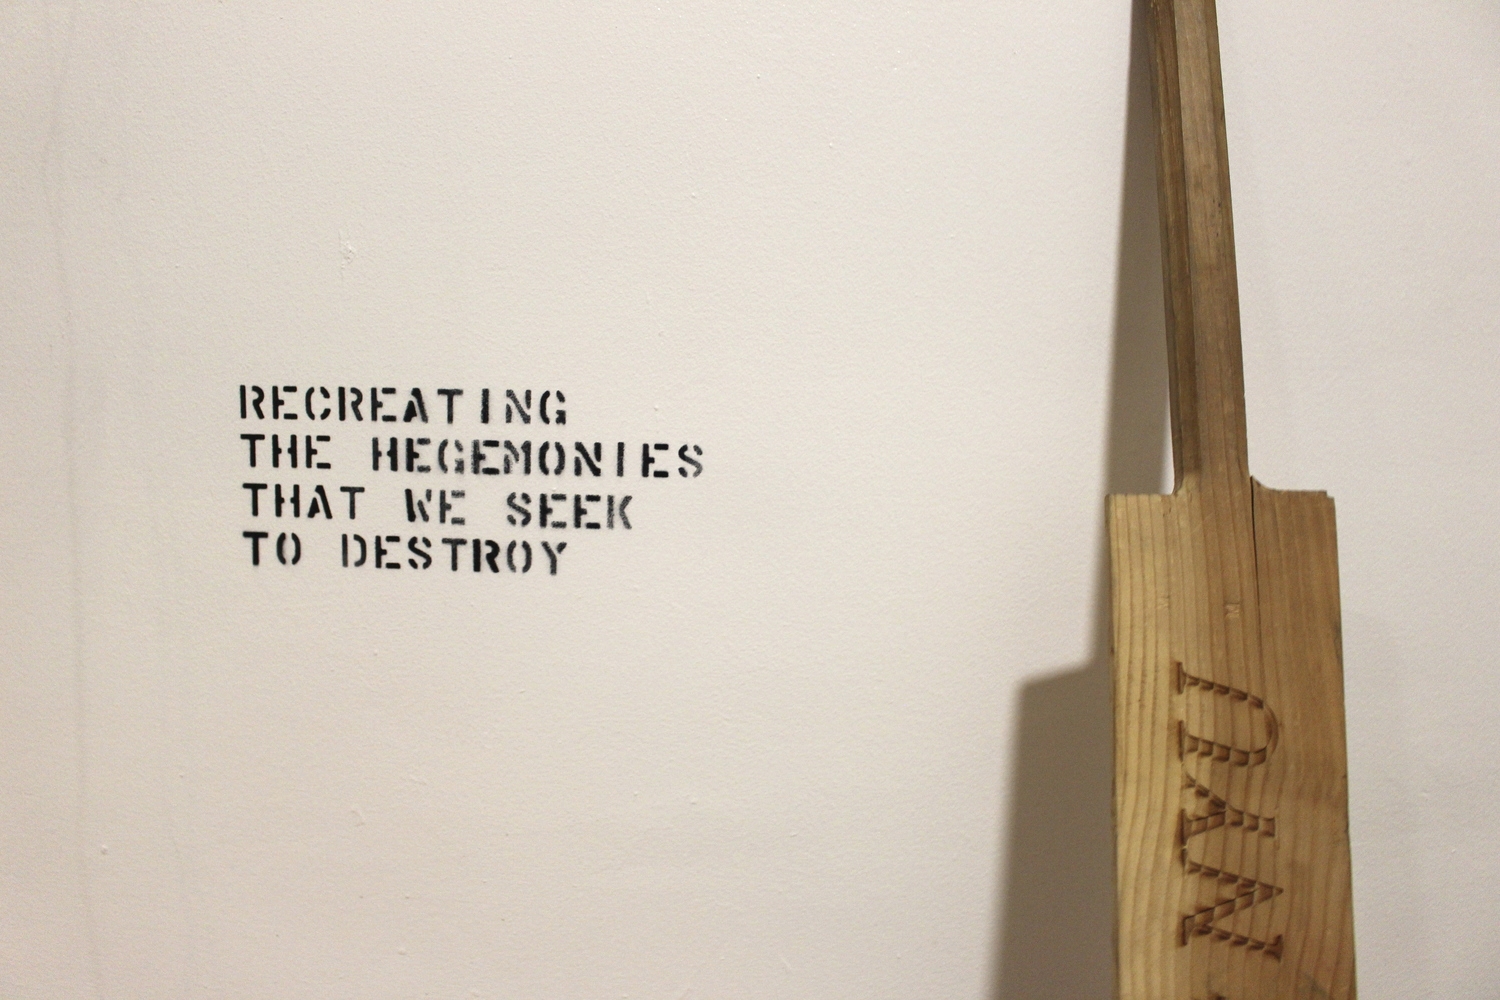 RECREATING
THE HEGEMONIES
THAT WE SEEK
TO DESTROY